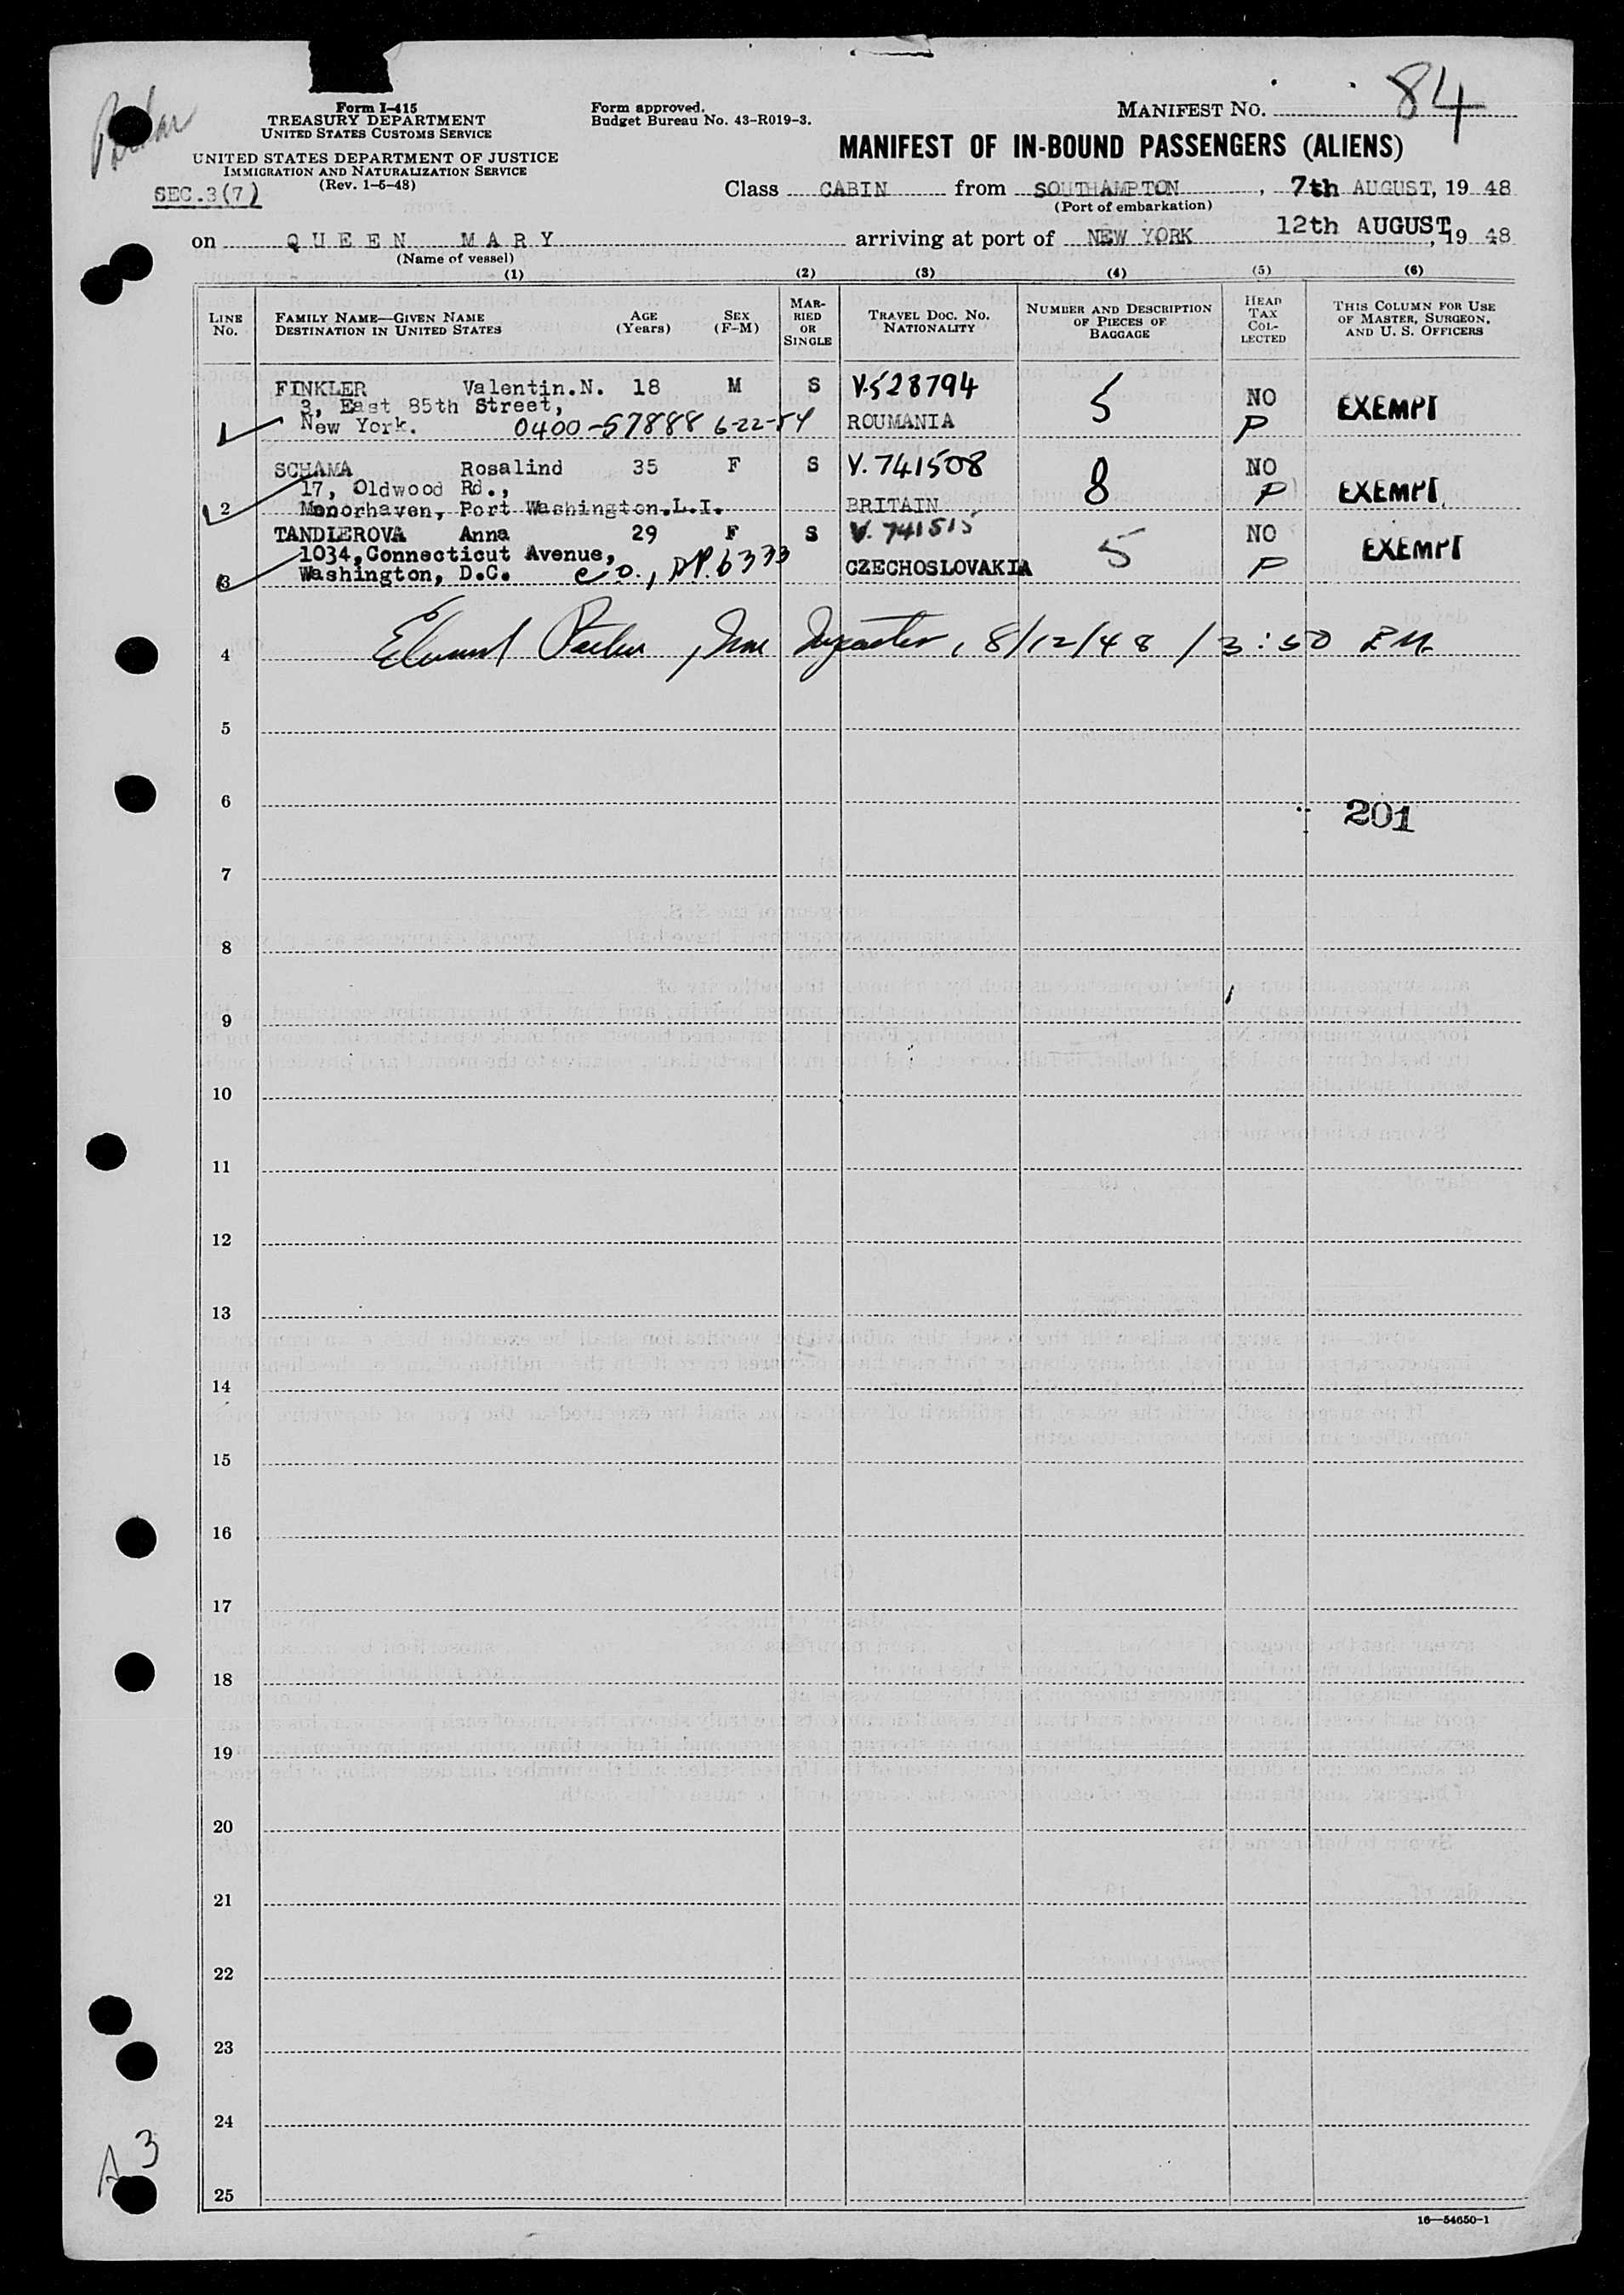 Form I-415
TREASURY DEPARTMENT
UNITED STATES CUSTOMS SERVICE
UNITED STATES DEPARTMENT OF JUSTICE
IMMIGRATION AND NATURALIZATION SERVICE
(Rev. 1-5-48)
SEC.3(7)
Form approved.
Budget Bureau No. 43-R019-3.
MANIFEST NO. 84
MANIFEST OF IN-BOUND PASSENGERS (ALIENS)
Class CABIN from SOUTHAMPTON, 7th AUGUST, 19 48
(Port of embarkation)
on QUEEN MARY arriving at port of NEW YORK 12th AUGUST, 19 48
(Name of vessel)
(1) (2) (3) (4) (5) (6)
LINE NO. FAMILY NAME—GIVEN NAME DESTINATION IN UNITED STATES AGE (Years) SEX (F-M) MARRIED OR SINGLE TRAVEL DOC. NO. NATIONALITY NUMBER AND DESCRIPTION OF PIECES OF BAGGAGE HEAD TAX COLLECTED THIS COLUMN FOR USE OF MASTER, SURGEON, AND U. S. OFFICERS
FINKLER Valentin.N. 18 M S V.528794 5 NO EXEMPT
3, East 85th Street,
New York. 0400-57888 6-22-54 ROUMANIA P
SCHAMA Rosalind 35 F S V.741508 8 NO EXEMPT
17, Oldwood Rd.,
2 Manorhaven, Port Washington.L.I. BRITAIN P
TANDLEROVA Anna 29 F S V.741515 5 NO EXEMPT
1034,Connecticut Avenue,
3 Washington, D.C. CZECHOSLOVAKIA P
4 Parker, Imm Inspector, 8/12/48 / 3:50 PM
5
6
201
7
8
9
10
11
12
13
14
15
16
17
18
19
20
21
22
23
24
25
A 3
16—54650-1